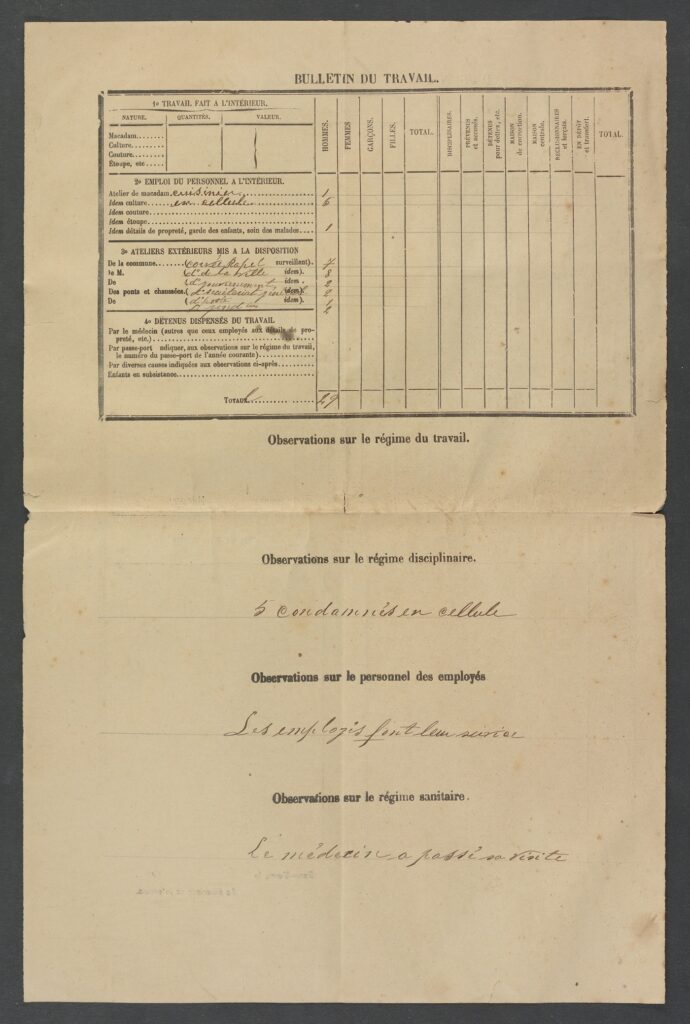 BULLETIN DU TRAVAIL.
1o TRAVAIL FAIT A L'INTÉRIEUR.
NATURE. QUANTITÉS. VALEUR.
HOMMES. FEMMES GARÇONS. FILLES. TOTAL. DISCIPLINAIRES. PRÉVENUS et accusés. DÉTENUS pour dettes, etc. MAISON de correction. MAISON centrale. RECLUSIONNAIRES et forçats. EN DÉPÔT et transfert. TOTAL.
Macadam.......
Culture........
Couture........
Étoupe, etc....
2o EMPLOI DU PERSONNEL A L'INTÉRIEUR.
Atelier de macadam cuisinier 1
Idem culture en cellule 6
Idem couture
Idem étoupe
Idem détails de propreté, garde des enfants, soin des malades. 1
3o ATELIERS EXTÉRIEURS MIS A LA DISPOSITION
De la commune....... surveillant). 4
De M. de la ville idem). 8
De idem. 2
Des ponts et chaussées, ( idem). 2
De ( idem).
2
4o DÉTENUS DISPENSÉS DU TRAVAIL
Par le médecin (autres que ceux employés aux détails de propreté, etc.)
Par passe-port indiquer, aux observations sur le régime du travail,
le numéro du passe-port de l'année courante)
Par diverses causes indiquées aux observations ci-après
Enfants en subsistance
TOTAUX 29
Observations sur le régime du travail.
Observations sur le régime disciplinaire.
5 condamnés en cellule
Observations sur le personnel des employés
Les employés font leur service
Observations sur le régime sanitaire.
Le médecin a passé sa visite